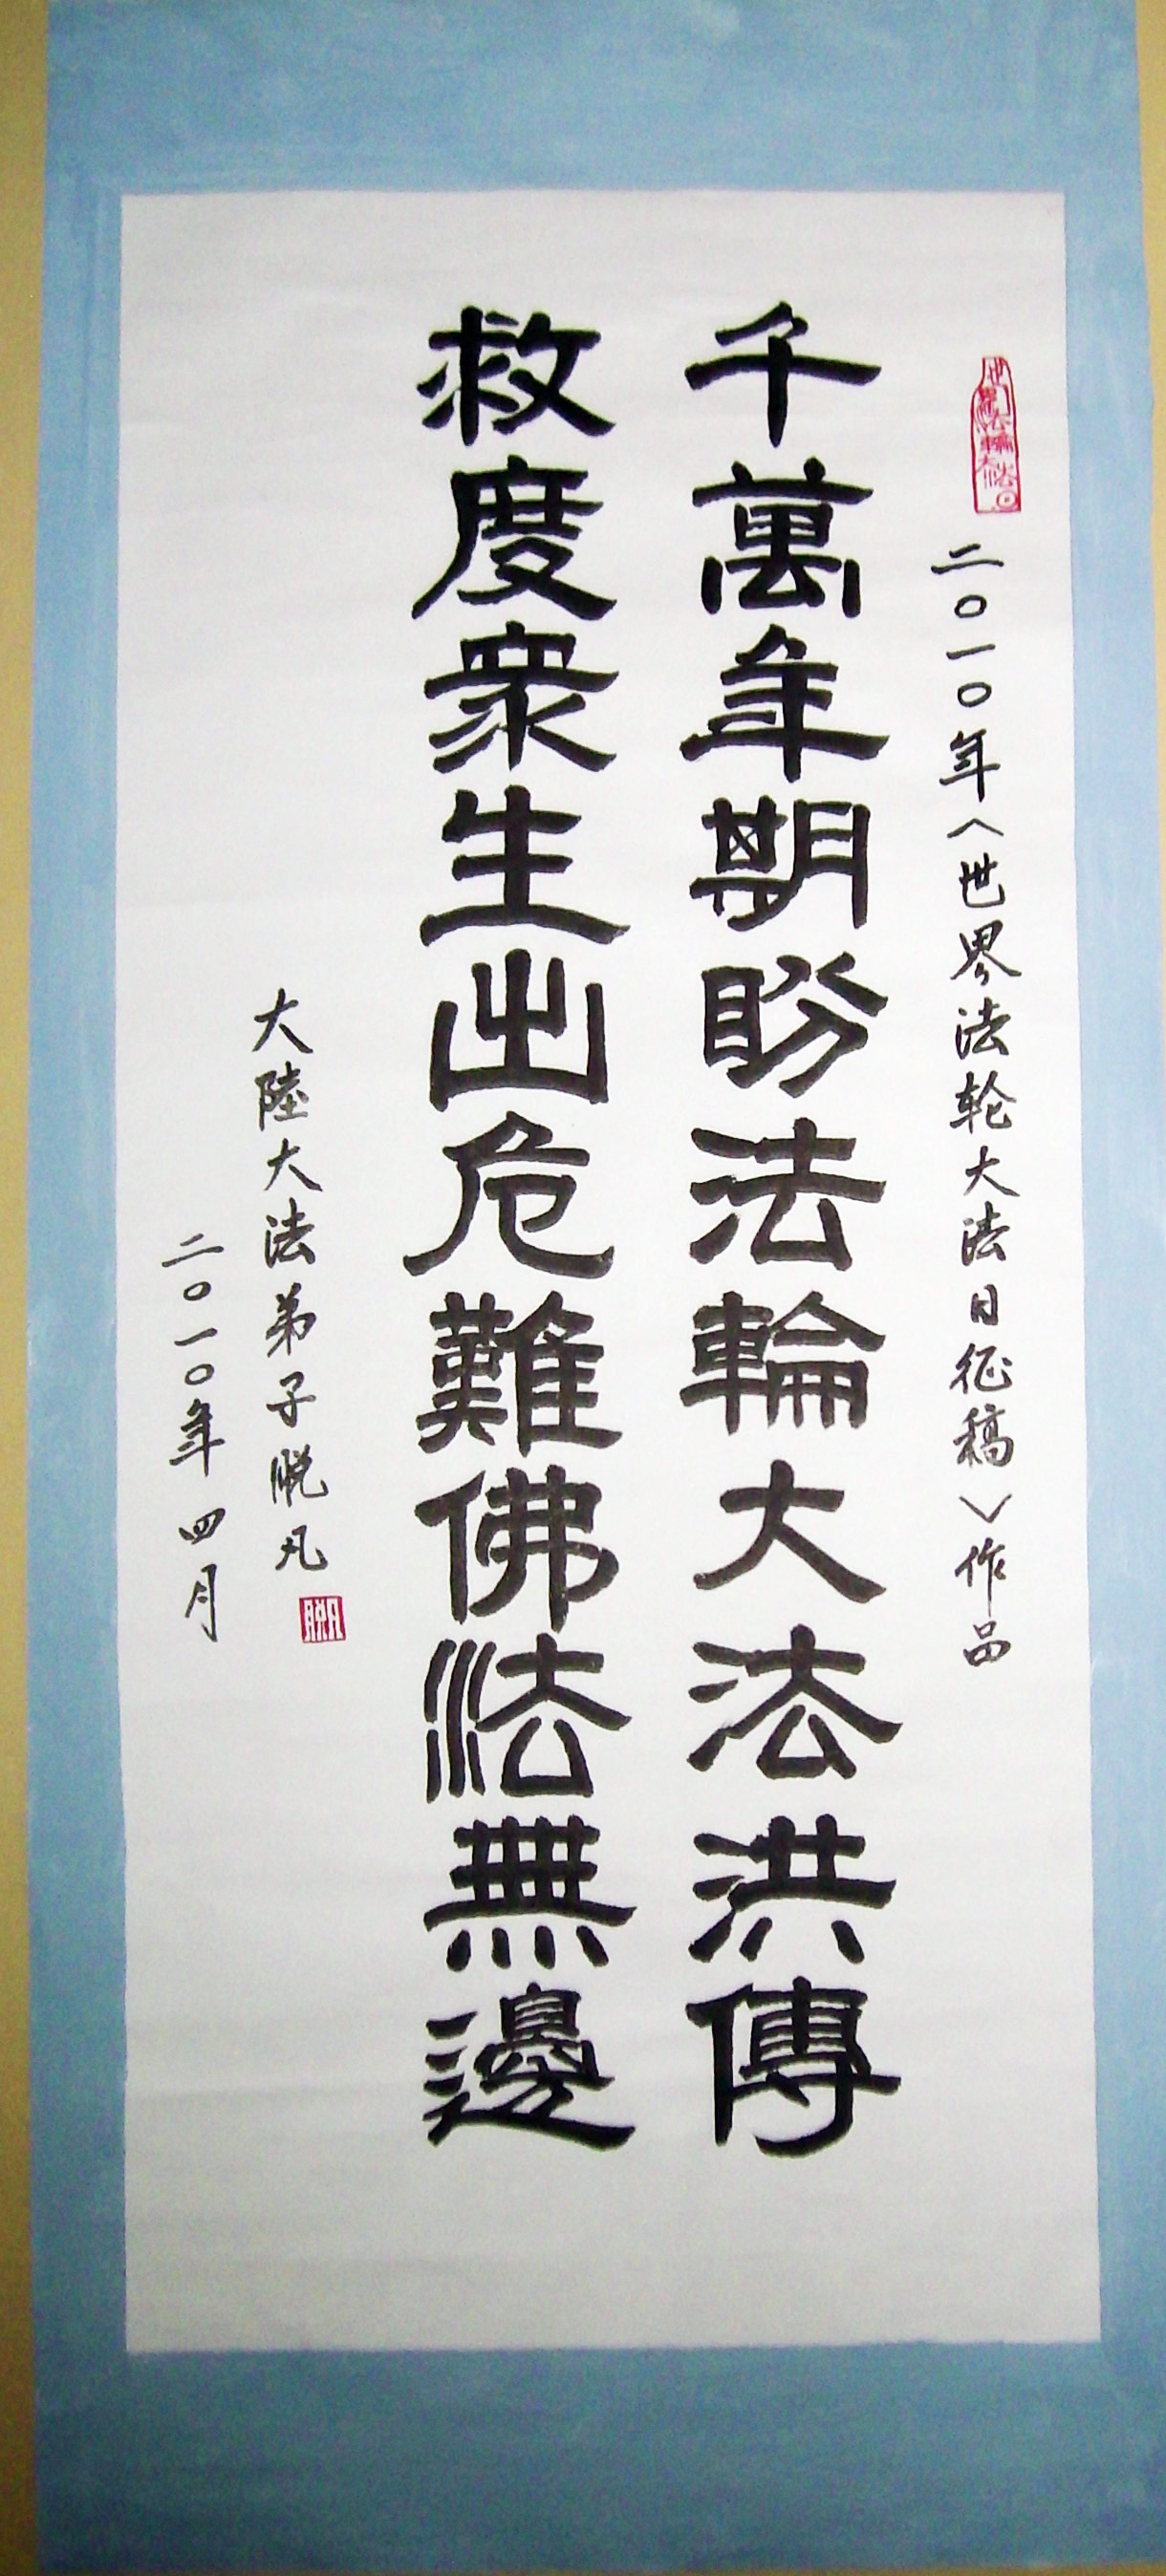 世界法輪大法
二〇一〇年〈世界法轮大法日征稿〉作品
千萬年期盼法輪大法洪傳
救度衆生出危難佛法無邊
大陸大法弟子脱凡
脱凡
二〇一〇年四月